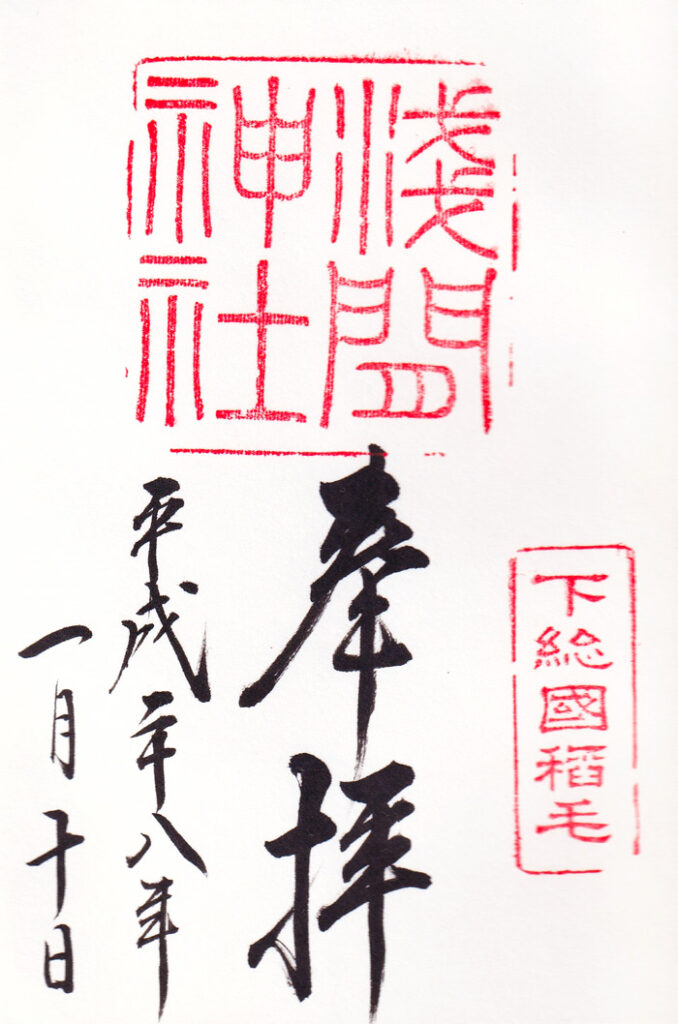 淺間
神社
下総國稲毛
奉拝
平成二十八年
一月十日